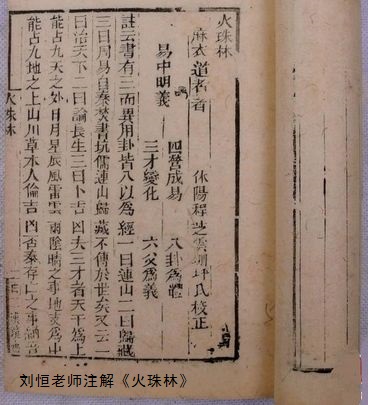 火珠林
麻衣道者著 休陽程芝雲 坪氏校正
易中明義
四營成易 八卦為體
三才變化 六爻為義
註云書有三而異用卦皆八以為經一曰連山二曰歸藏
三曰周易自秦焚書坑儒連山歸藏不傳於世矣又云一
曰治天下二曰論長生三曰卜吉凶夫三才者天為上
能占九天之外日月星辰風雷雲雨陰晴之事地支為中
能占九地之上山川草木人倫吉凶否泰存亡之事納音
火珠林
刘恒老师注解《火珠林》